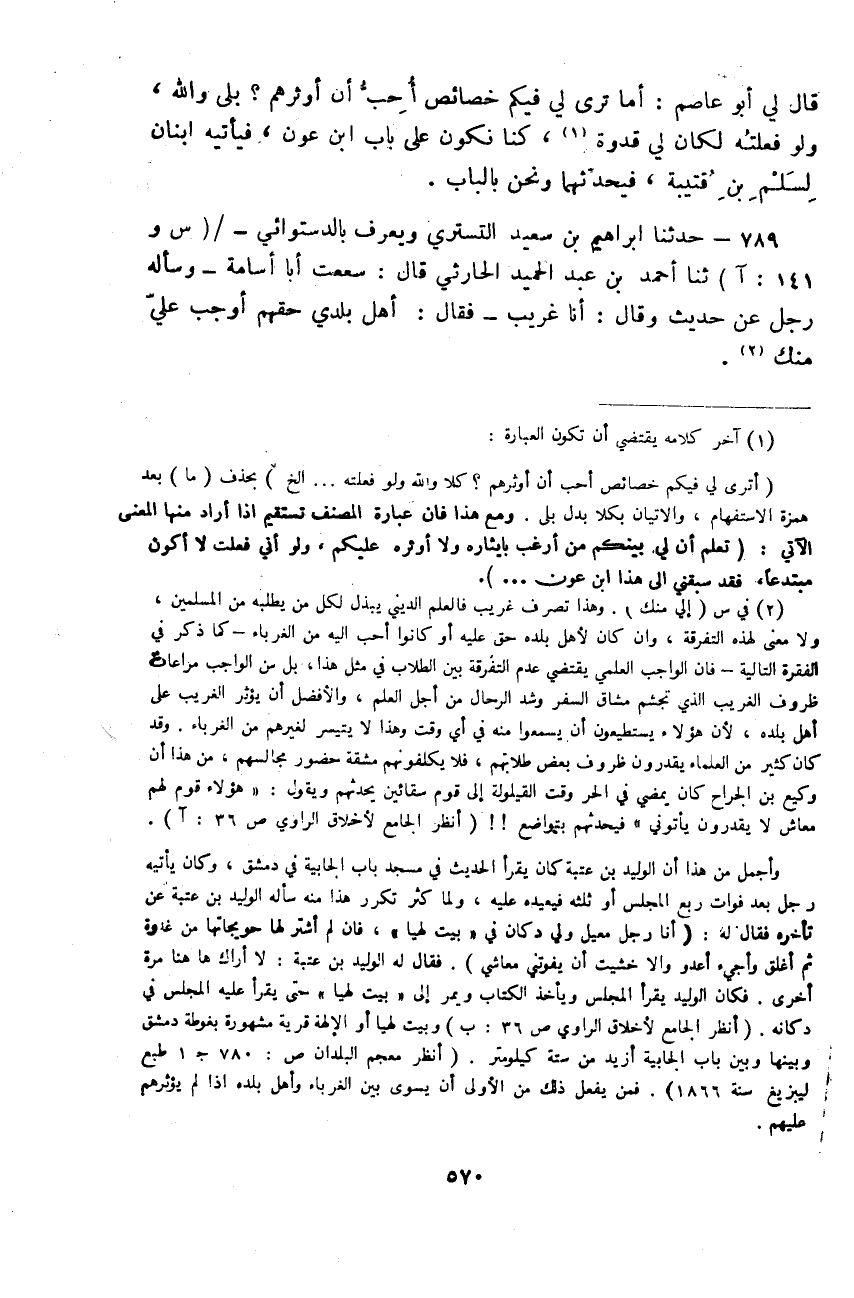 قال لي أبو عاصم : أما ترى لي فيكم خصائص أُحِبُّ أن أوثرهم ؟ بلى والله ،
ولو فعلتُه لكان لي قدوة (١) ، كنا نكون على باب ابن عون ، فيأتيه ابنان
لِسَلْمِ بنِ قُتيبة ، فيحدّثهما ونحن بالباب .
٧٨٩ – حدثنا ابراهيم بن سعيد التستري ويعرف بالدستوائي – /( س و
١٤١ : آ ) ثنا أحمد بن عبد الحميد الحارثي قال : سمعت أبا أسامة – وسأله
رجل عن حديث وقال : أنا غريب – فقال : أهل بلدي حقهم أوجب عليّ
منك (٢) .
(١) آخر كلامه يقتضي أن تكون العبارة :
( أترى لي فيكم خصائص أحب أن أوثرهم ؟ كلا والله ولو فعلته ... الخ ) بحذف ( ما ) بعد
همزة الاستفهام ، والاتيان بكلا بدل بلى . ومع هذا فان عبارة المصنف تستقيم اذا أراد منها المعنى
الآتي : ( تعلم أن لي بينكم من أرغب بايثاره ولا أوثره عليكم ، ولو أني فعلت لا أكون
مبتدعاً، فقد سبقني الى هذا ابن عون ... ).
(٢) في س ( إلي منك ) . وهذا تصرف غريب فالعلم الديني يبذل لكل من يطلبه من المسلمين ،
ولا معنى لهذه التفرقة ، وان كان لأهل بلده حق عليه أو كانوا أحب اليه من الغرباء – كما ذكر في
الفقرة التالية – فان الواجب العلمي يقتضي عدم التفرقة بين الطلاب في مثل هذا، بل من الواجب مراعاة
ظروف الغريب الذي تجشم مشاق السفر وشد الرحال من أجل العلم ، والأفضل أن يؤثر الغريب على
أهل بلده ، لأن هؤلاء يستطيعون أن يسمعوا منه في أي وقت وهذا لا يتيسر لغيرهم من الغرباء . وقد
كان كثير من العلماء يقدرون ظروف بعض طلابهم ، فلا يكلفونهم مشقة حضور مجالسهم ، من هذا أن
وكيع بن الجراح كان يمضي في الحر وقت القيلولة إلى قوم سقائين يحدثهم ويقول : « هؤلاء قوم لهم
معاش لا يقدرون يأتوني » فيحدثهم بتواضع !! ( أنظر الجامع لأخلاق الراوي ص ٣٦ : آ ) .
وأجمل من هذا أن الوليد بن عتبة كان يقرأ الحديث في مسجد باب الجابية في دمشق ، وكان يأتيه
رجل بعد فوات ربع المجلس أو ثلثه فيعيده عليه ، ولما كثر تكرر هذا منه سأله الوليد بن عتبة عن
تأخره فقال له : ( أنا رجل معيل ولي دكان في « بيت لهيا » ، فان لم أشتر لها حويجاتها من غدوة
ثم أغلق وأجيء أعدو والا خشيت أن يفوتني معاشي ) . فقال له الوليد بن عتبة : لا أراك ها هنا مرة
أخرى . فكان الوليد يقرأ المجلس ويأخذ الكتاب ويمر إلى « بيت لهيا » حتى يقرأ عليه المجلس في
دكانه . ( أنظر الجامع لأخلاق الراوي ص ٣٦ : ب ) وبيت لهيا أو الإلهة قرية مشهورة بغوطة دمشق
وبينها وبين باب الجابية أزيد من ستة كيلومتر . ( أنظر معجم البلدان ص : ٧٨٠ جـ ١ طبع
ليبزيغ سنة ١٨٦٦) . فمن يفعل ذلك من الأولى أن يسوى بين الغرباء وأهل بلده اذا لم يؤثرهم
عليهم .
٥٧٠